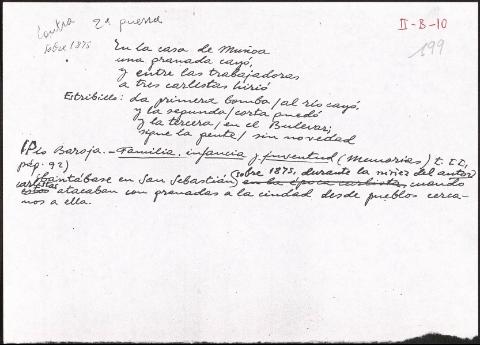 Contra 2ª guerra
sobre 1875
II-B-10
199
En la casa de Muñoa
una granada cayó,
y entre las trabajadoras
a tres carlistas hirió
Estribillo: La primera bomba / al río cayó
y la segunda / corta quedó
y la tercera / en el Bulevar;
sigue la gente / sin novedad
(Pío Baroja.- Familia, infancia y juventud (Memorias) t. II,
pág. 92)
Cantábase en San Sebastián, sobre 1875, durante la niñez del autor, en la época carlista, cuando
carlistas estos atacaban con granadas a la ciudad desde pueblos cerca-
nos a ella.